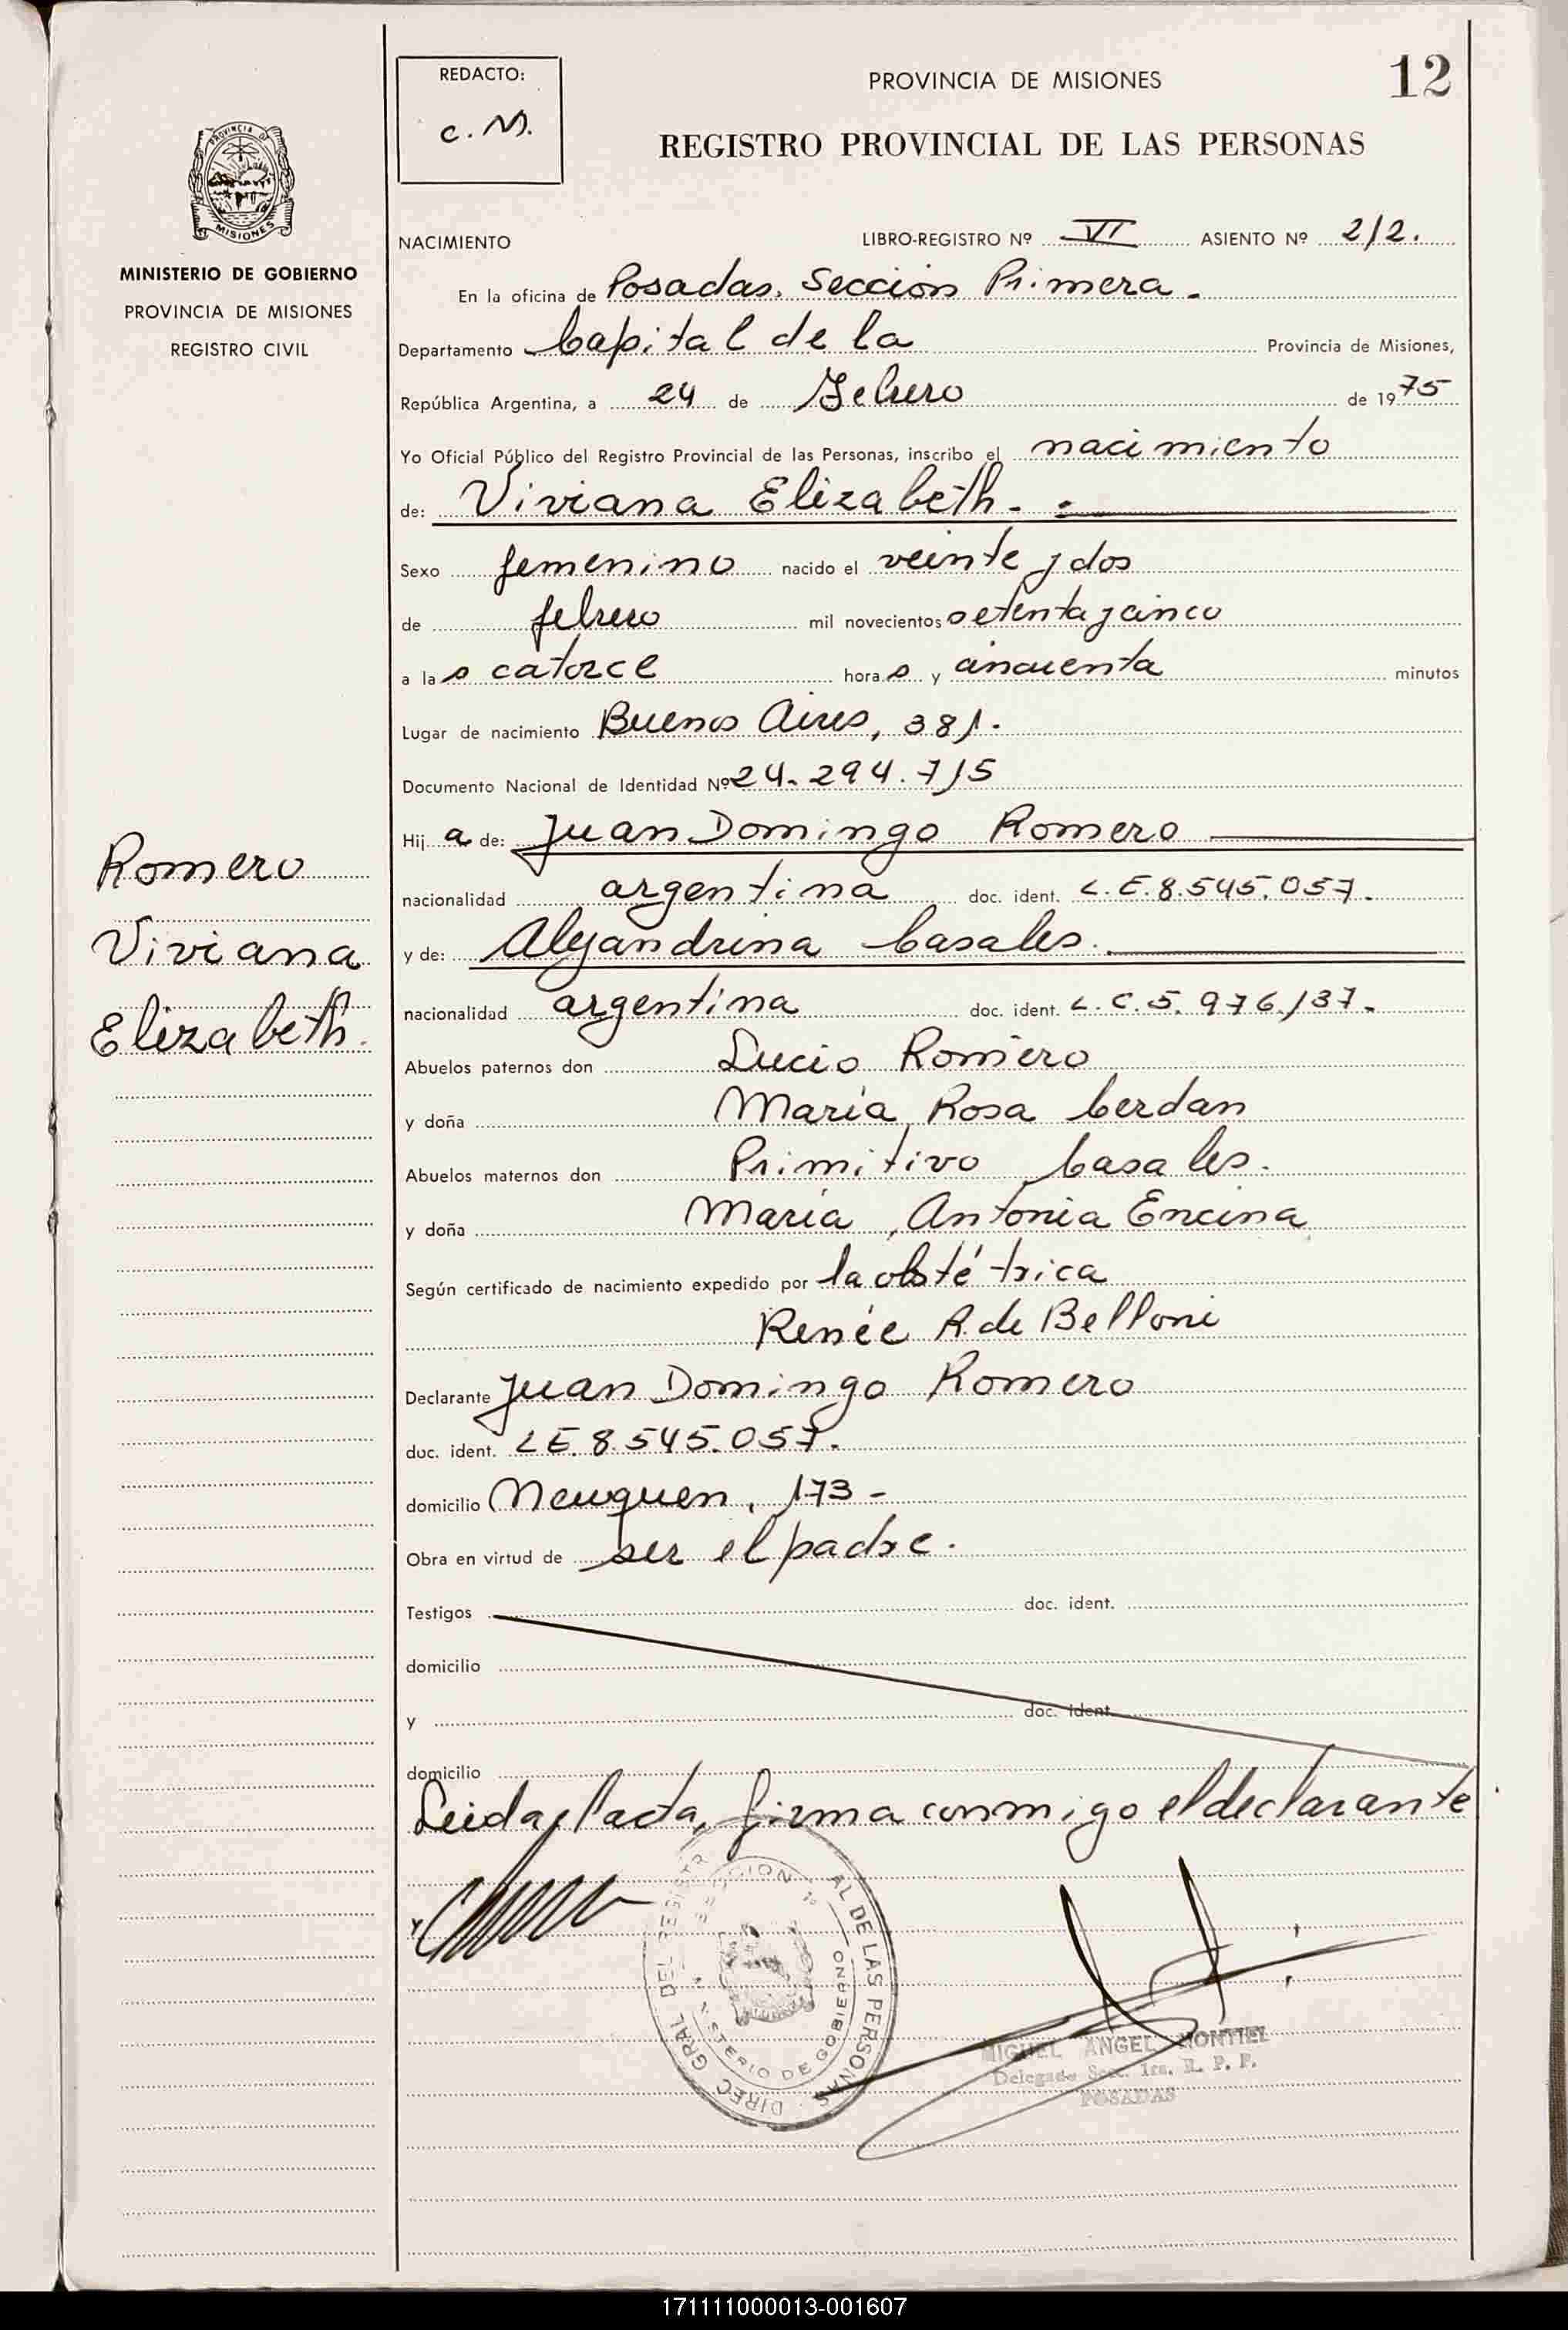 REDACTO:
C. M.
PROVINCIA DE MISIONES
12
REGISTRO PROVINCIAL DE LAS PERSONAS
PROVINCIA DE
MISIONES
MINISTERIO DE GOBIERNO
PROVINCIA DE MISIONES
REGISTRO CIVIL
NACIMIENTO LIBRO-REGISTRO Nº VI ASIENTO Nº 212.
En la oficina de Posadas, Sección Primera.
Departamento Capital de la Provincia de Misiones,
República Argentina, a 24 de Febrero de 1975
Yo Oficial Público del Registro Provincial de las Personas, inscribo el nacimiento
de: Viviana Elizabeth.
Sexo femenino nacido el veinte y dos
de febrero mil novecientos setenta y cinco
a las catorce horas y cincuenta minutos
Lugar de nacimiento Buenos Aires, 381.
Documento Nacional de Identidad Nº 24.294.715
Hija de: Juan Domingo Romero
nacionalidad argentina doc. ident. L.E.8.545.057.
y de: Alejandrina Casales.
nacionalidad argentina doc. ident. L.C.5.976.137.
Abuelos paternos don Lucio Romero
y doña María Rosa Cerdan
Abuelos maternos don Primitivo Casales.
y doña María Antonia Encina
Según certificado de nacimiento expedido por la obstétrica
Renée R. de Belloni
Declarante Juan Domingo Romero
doc. ident. LE.8.545.057.
domicilio Neuquen, 173-
Obra en virtud de ser el padre.
Testigos doc. ident.
domicilio
y doc. ident.
domicilio
Leida el acta, firma conmigo el declarante
Romero
Viviana
Elizabeth.
DIREC GRAL DEL REGISTR AL DE LAS PERSONAS
SECCION 1º
MINISTERIO DE GOBIERNO
MIGUEL ANGEL MONTIEL
Delegado Secc. 1ra. R. P. P.
POSADAS
171111000013-001607